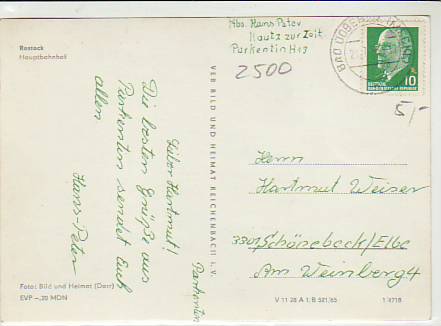 Rostock
Hauptbahnhof
Abs. Hans Peter
Kautz zur Zeit
Parkentin H13
2500
BAD DOBERAN (MECKL)
10
DEUTSCHE
DEMOKRATISCHE REPUBLIK
5,-
VEB BILD UND HEIMAT REICHENBACH i. V.
Parkentin
Lieber Hartmut!
Die besten Grüße aus
Parkentin sendet Euch
allen
Hans-Peter
Herrn
Hartmut Weiser
3301 Schönebeck/Elbe
Am Weinberg 4
Foto: Bild und Heimat (Darr)
EVP -,20 MDN
V 11 28 A 1: B 521/65
1/4718